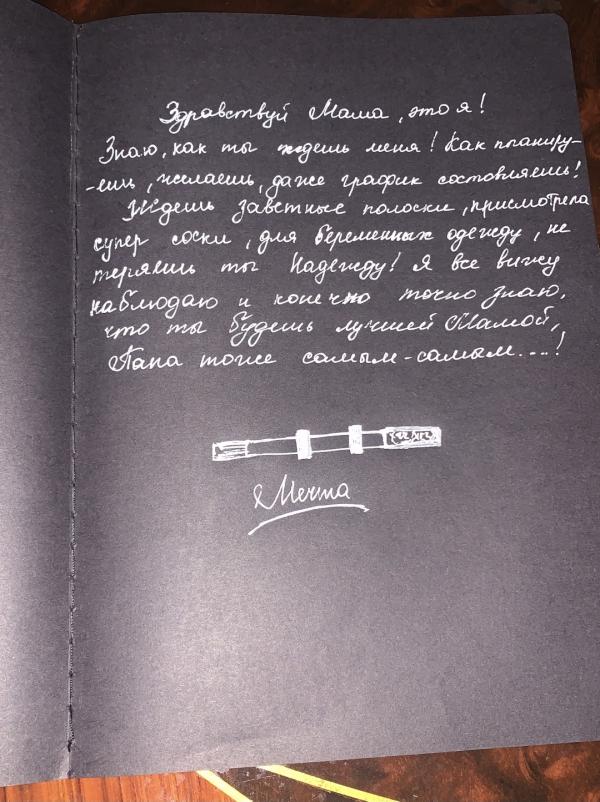 Здравствуй Мама, это я!
Знаю, как ты ждешь меня! Как планиру-
-ешь, желаешь, даже график составляешь!
Ждешь заветные полоски, присмотрела
супер соски, для беременных одежду, не
теряешь ты Надежду! Я все вижу
наблюдаю и конечно точно знаю,
что ты будешь лучшей Мамой,
Папа тоже самым-самым....!
Мечта